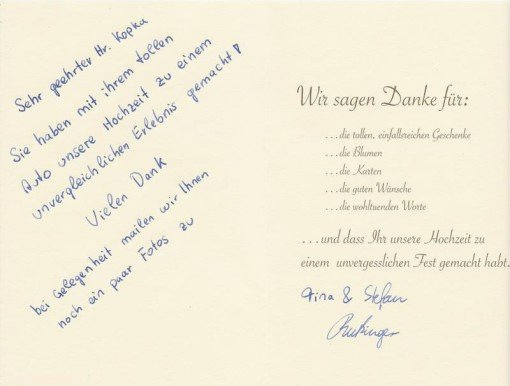 Sehr geehrter Hr. Kopka
Sie haben mit ihrem tollen
Auto unsere Hochzeit zu einem
unvergleichlichen Erlebnis gemacht!
Vielen Dank
bei Gelegenheit mailen wir Ihnen
noch ein paar Fotos zu
Wir sagen Danke für:
...die tollen, einfallsreichen Geschenke
...die Blumen
...die Karten
...die guten Wünsche
...die wohltuenden Worte
...und dass Ihr unsere Hochzeit zu
einem unvergesslichen Fest gemacht habt.
Tina & Stefan